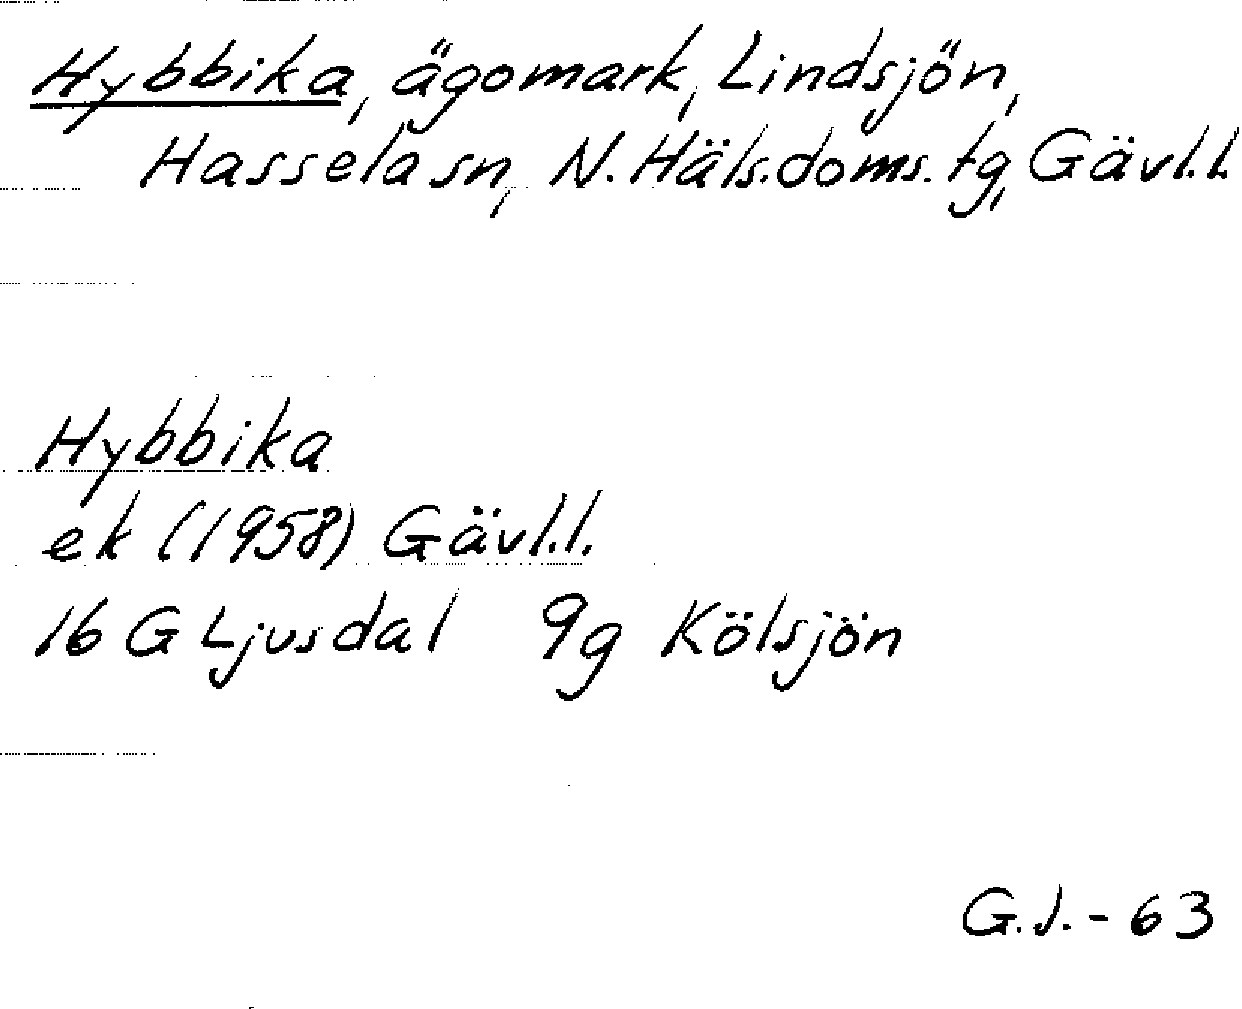 Hybbika, ägomark, Lindsjön,
Hassela sn, N. Häls. doms. tg, Gävl.l.
Hybbika
ek (1958) Gävl.l.
16 G Ljusdal 9g Kölsjön
G.J.-63